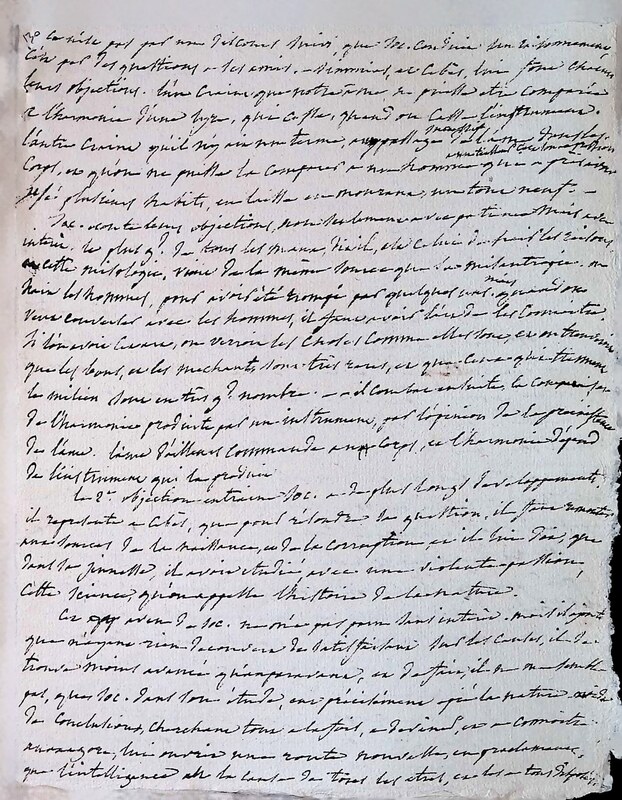 Ce n'est pas par un discours suivi, que Soc. conduit son raisonnement,
C'est par des questions a ses amis. - Simmias, et Cebès, lui font chacun
leurs objections. l'un craint que notre ame ne puisse etre comparée
a l'harmonie d'une lyre, qui cesse, quand on casse l'instrument.
l'autre craint qu'il n'y ait un terme, au passage successif de l'ame dans les
corps, et qu'on ne puisse la comparer a un homme qui a
usé plusieurs habits, et laisse en mourant, un tout neuf. -
Soc. ecoute leurs objections, non seulement avec patience mais avec
interet. le plus gd de tous les maux dit il, est celui de haïr les raisons,
et cette misologie, vient de la même source que la misantropie. on
hait les hommes, pour avoir été trompé par quelques uns. mais quand on
veut converser avec les hommes, il faut avoir l'art de les connoitre
Si l'on avoit cet art, on verroit les choses comme elles sont, et on trouveroit
que les bons, et les mechants sont très rares, et que ceux qui tiennent
le milieu sont en très gd nombre. - il combat ensuite, la comparaison
de l'harmonie produite par un instrument, par l'opinion de la préexistence
de l'ame. l'ame d'ailleurs commande au corps, et l'harmonie dépend
de l'instrument qui la produit.
la 2e. objection entraine Soc. a de plus longs développements,
il represente a Cebès, que pour résoudre sa question, il faut remonter
aux sources de la naissance, et de la corruption, et il lui dit, que
dans sa jeunesse, il avoit étudié avec une violente passion,
cette science qu'on appelle l'histoire de la nature.
Ce aveu de Soc. ne m'a pas paru sans interet. mais il ajoute
que n'ayant rien decouvert de satisfaisant sur les causes, il se
trouva moins avancé qu'auparavant, et de fait, il ne me semble
pas, que Soc. dans son étude, eut précisément épié la nature
de conclusions, cherchant tout a la fois, a deviner, et a connoitre.
anaxagore, lui ouvrit une route nouvelle, en proclamant,
que l'intelligence est la cause de tous les etres, et les a tous disposés,